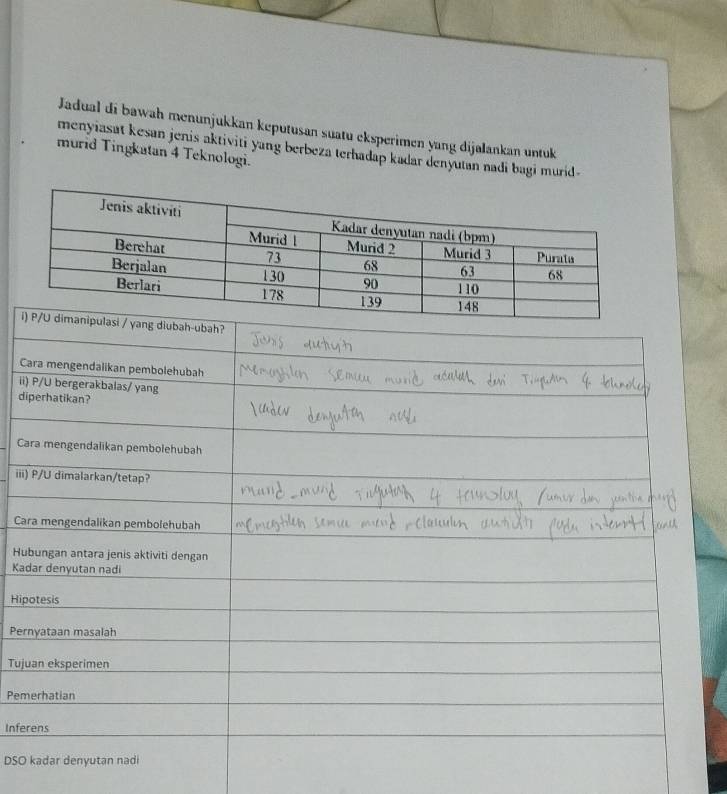 Jadual di bawah menunjukkan keputusan suatu eksperimen yang dijalankan untuk
menyiasat kesan jenis aktiviti yang berbeza terhadap kadar denyutan nadi bagi murid-
murid Tingkatan 4 Teknologi.
Jenis aktiviti
Kadar denyutan nadi (bpm)
Murid 1 Murid 2 Murid 3 Purata
Berehat 73 68 63 68
Berjalan 130 90 110
Berlari 178 139 148
i) P/U dimanipulasi / yang diubah-ubah? Jenis
Cara mengendalikan pembolehubah semua murid adalah dari 4
ii) P/U bergerakbalas/ yang
diperhatikan?
denyutan
Cara mengendalikan pembolehubah
iii) P/U dimalarkan/tetap? murid-murid 4
Cara mengendalikan pembolehubah semua pada
Hubungan antara jenis aktiviti dengan
Kadar denyutan nadi
Hipotesis
Pernyataan masalah
Tujuan eksperimen
Pemerhatian
Inferens
DSO kadar denyutan nadi